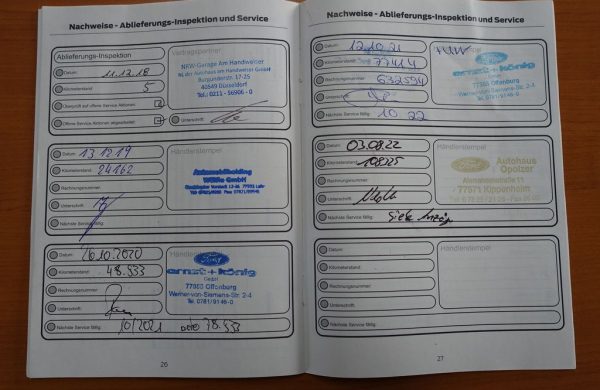 Nachweise - Ablieferungs-Inspektion und Service
Ablieferungs-Inspektion
Datum: 11.12.18
Kilometerstand: 5
Überprüft auf offene Service-Aktionen
Offene Service-Aktionen abgearbeitet
Vertragspartner
NRW-Garage Am Handweiser
40549 Düsseldorf
Tel.: 0211 - 56906 - 0
Unterschrift:
Datum: 13.12.19
Kilometerstand: 24162
Rechnungsnummer:
Unterschrift:
Nächste Service fällig:
Händlerstempel
Automobilholding
GmbH
Datum: 26.10.2020
Kilometerstand: 48.533
Rechnungsnummer:
Unterschrift:
Nächste Service fällig: 10/2021 oder 78.533
Händlerstempel
Ford
ernst+könig
GmbH
77652 Offenburg
Werner-von-Siemens-Str. 2-4
Tel. 0781/9146-0
26
Nachweise - Ablieferungs-Inspektion und Service
Datum: 12.10.21
Kilometerstand: 77414
Rechnungsnummer: 632594
Unterschrift:
Nächste Service fällig: 10 22
Ford
ernst+könig
GmbH
77652 Offenburg
Werner-von-Siemens-Str. 2-4
Tel. 0781/9146-0
Datum: 03.08.22
Kilometerstand: 108225
Rechnungsnummer:
Unterschrift:
Nächste Service fällig: Siehe Anzeige
Händlerstempel
Ford
Autohaus
Opolzer
77971 Kippenheim
Datum:
Kilometerstand:
Rechnungsnummer:
Unterschrift:
Nächste Service fällig:
Händlerstempel
27